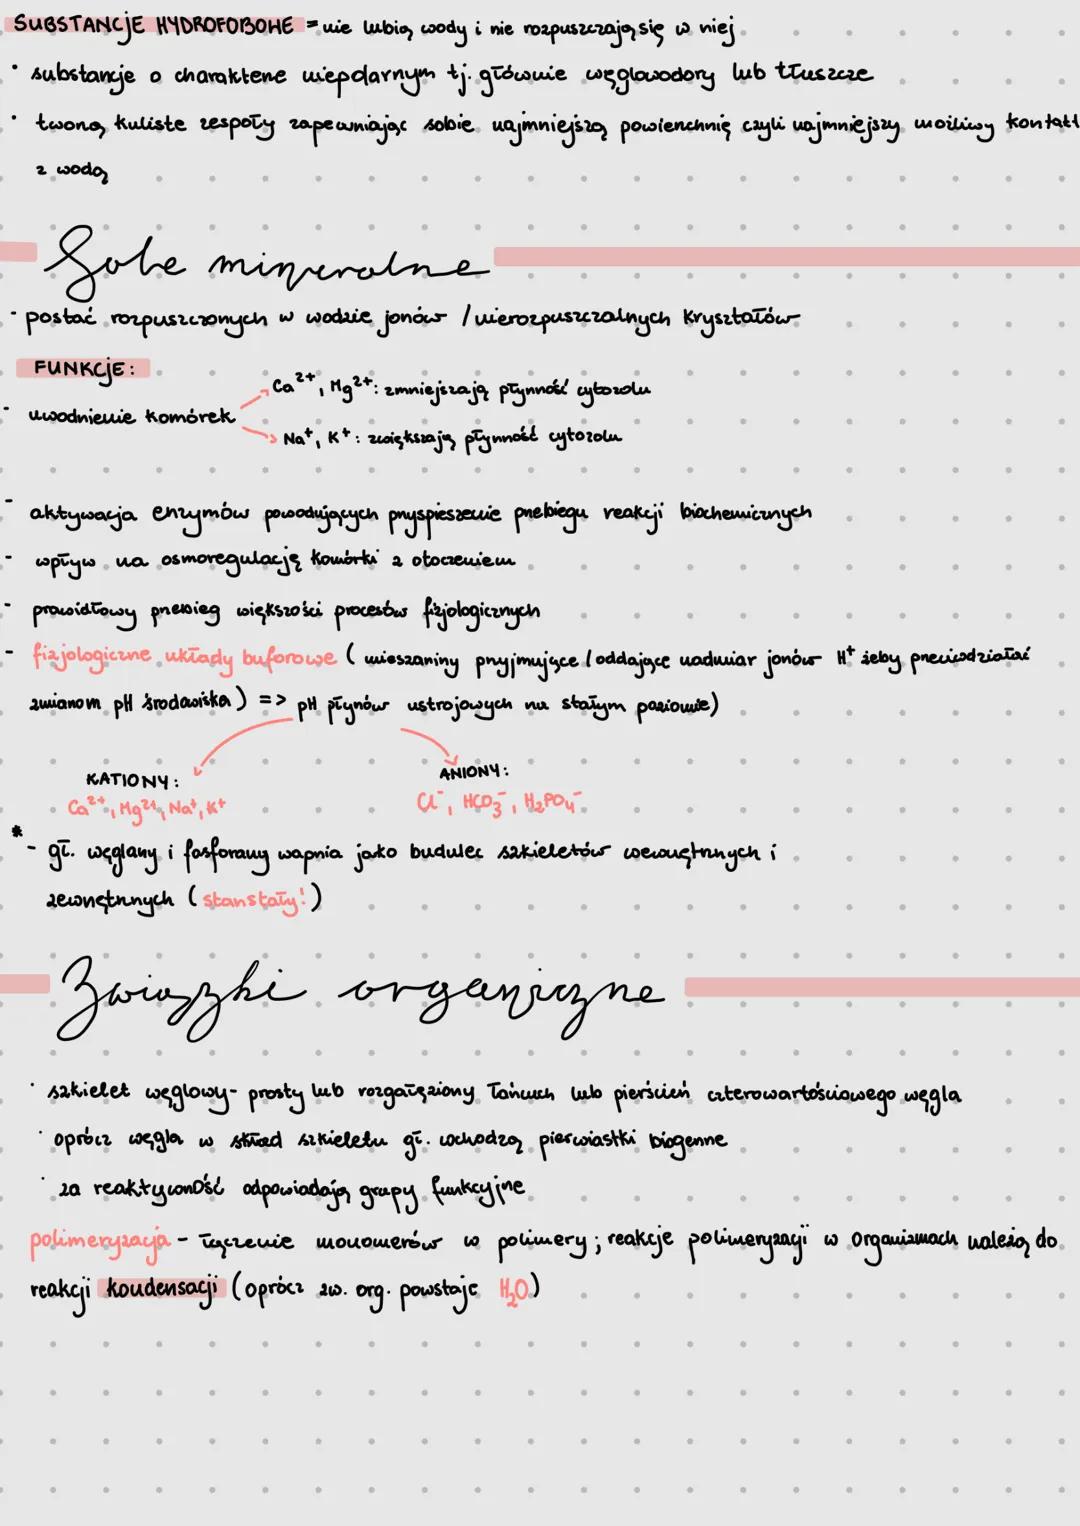 SUBSTANCJE HYDROFOBOWE = nie lubią wody i nie rozpuszczają się w niej
• substancje o charakterze niepolarnym tj. głównie węglowodory lub tłuszcze
• tworzą kuliste zespoły zapewniając sobie najmniejszą powierzchnię czyli najmniejszy możliwy kontakt
z wodą
Sole mineralne
- postać rozpuszczonych w wodzie jonów / nierozpuszczalnych kryształów
FUNKCJE:
Ca²⁺, Mg²⁺: zmniejszają płynność cytozolu
- uwodnienie komórek
Na⁺, K⁺: zwiększają płynność cytozolu
- aktywacja enzymów powodujących przyspieszenie przebiegu reakcji biochemicznych
- wpływ na osmoregulację komórki z otoczeniem
- prawidłowy przebieg większości procesów fizjologicznych
- fizjologiczne układy buforowe (mieszaniny przyjmujące / oddające nadmiar jonów H⁺ żeby przeciwdziałać
zmianom pH środowiska) => pH płynów ustrojowych na stałym poziomie)
KATIONY: ANIONY:
Ca²⁺, Mg²⁺, Na⁺, K⁺ Cl⁻, HCO₃⁻, H₂PO₄⁻
* - gł. węglany i fosforany wapnia jako budulec szkieletów wewnętrznych i
zewnętrznych (stan stały!)
Związki organiczne
• szkielet węglowy - prosty lub rozgałęziony łańcuch lub pierścień czterowartościowego węgla
• oprócz węgla w skład szkieletu gł. wchodzą pierwiastki biogenne
• za reaktywność odpowiadają grupy funkcyjne
polimeryzacja - łączenie monomerów w polimery; reakcje polimeryzacji w organizmach należą do
reakcji kondensacji (oprócz zw. org. powstaje H₂O)